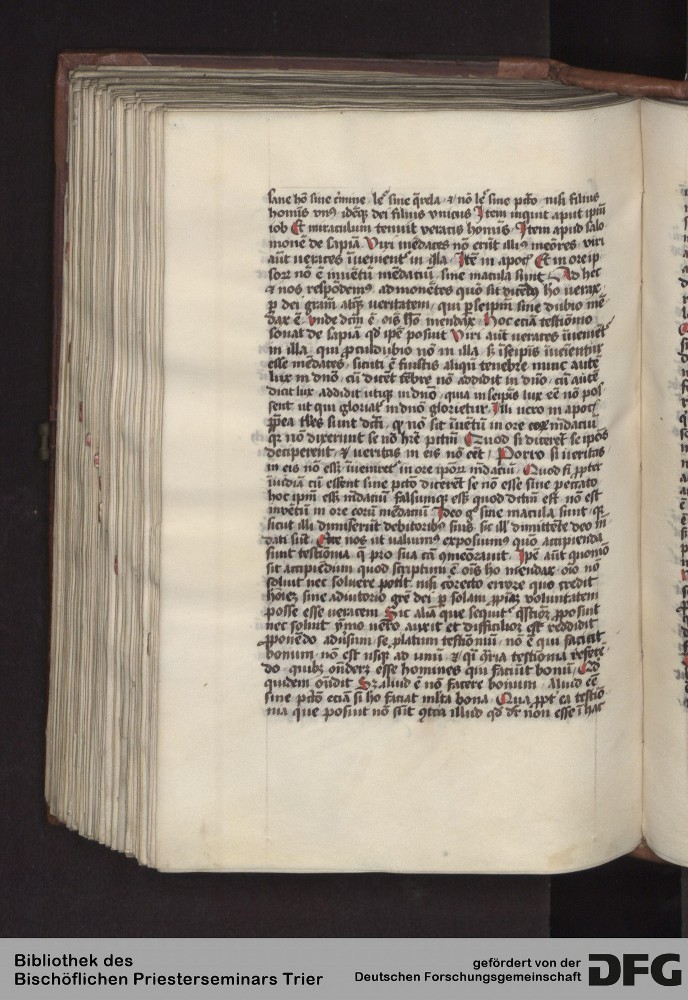 sane hō sine c̄mine · le᷒ sine q̄rela · ⁊ nō le᷒ sine pctō · nisi filius
homīs vn᷒ idēq̨ dei filius vnicus Item inquit aput ip̄m
iob Et miraculum tenuit veracis homīs · Item apud salo
monē de sapīa Viri mēdates nō erūt illi᷒ meōres · viri
aūt veraces īvenient̄ in illa · Itē in apoc̄ Et in ore ip
soꝝ nō ē invētū mēdatiū · sine macula sunt · Ad hec
⁊ nos respōdem᷒ admonētes quō sit dicēd᷒ hō verax ·
ꝑ dei grām atq̨ veritatem / qui ꝑ seip̄m sine dubio mē
dax ē · vnde dc̄m ē oīs hō mendax · Hoc eciā testiōnio
sonat de sapīa qd̄ ip̄e posuit Viri aūt veraces īvenient̄
in illa / qui ꝓculdubio nō in illa s̄ ī seip̄is īvenient̄
esse mēdates · sicuti ē fuistis aliqn̄ tenebre nunc autē
lux in dn̄o · cū dicēt tēbre nō addidit in dn̄o / cū autē
dicit lux addidit utiq̨ in dn̄o / quia in seip̄is lux eē nō pos
sent ut qui gloriat̄ in dn̄o glorietur · Illi vero in apoc̄
ꝓpea tl̄es sunt dc̄ti / qꝛ nō sit īvētū in ore mdaciū
qꝛ nō dixerunt se nō h̄re pctm̄ Quod si dicerēt seip̄os
deciperent / ⁊ veritas in eis nō eēt · Porro si veritas
in eis nō ess̄ īveniret̄ in ore ip̄oꝝ mdatiū · Quod si ꝓpter
īvidiā cū essent sine pctō dicerēt se nō esse sine peccato
hoc ip̄m ess̄ mdatiū falsumq̨ ess̄ quod dictū est nō est
invētū in ore eorū mēdatiū Ideo g᷒ sine macula sunt qꝛ
sicut illi dimiserūt debitorib᷒ suis sic ill᷒ dimittēte deo m
dati sūt · Ecce nos ut valuim᷒ exposuim᷒ quō accipienda
sunt testiōnia q̄ pro sua cā ꝯmēōravit · Ipē aūt quomō
sit accipiēdum quod scriptum ē oīs hō mendax · oīo nō
soluit nec soluere potīt nisi correcto errore quo credit
hoīez sine adiutorio grē dei ꝑ solam ꝓpiaz voluntatem
posse esse veracem Sic aliā que sequit̄ q̄stiōz ꝓposuit
nec soluit ȳmo vero auxit et difficiliorem reddidit
ꝓponēdo adūsum se ꝓlatum testiōniū / nō ē qui faciat
bonum · nō est usq̨ ad unū · ⁊ qi q̄ria testiōnia refere
do quib᷒ on̄deret esse homines qui faciūt bonū · Qd̄
quidem on̄dit Sꝫ aliud ē nō facere bonum · Aliud eē
sine pctō eciā si hō faciat mlta bona · Qua ꝓpt̄ ea testiō
nia que posuit nō sūt ꝯtra illud qd̄ d̄r non esse ī hac
Bibliothek des
Bischöflichen Priesterseminars Trier
gefördert von der
Deutschen Forschungsgemeinschaft
DFG